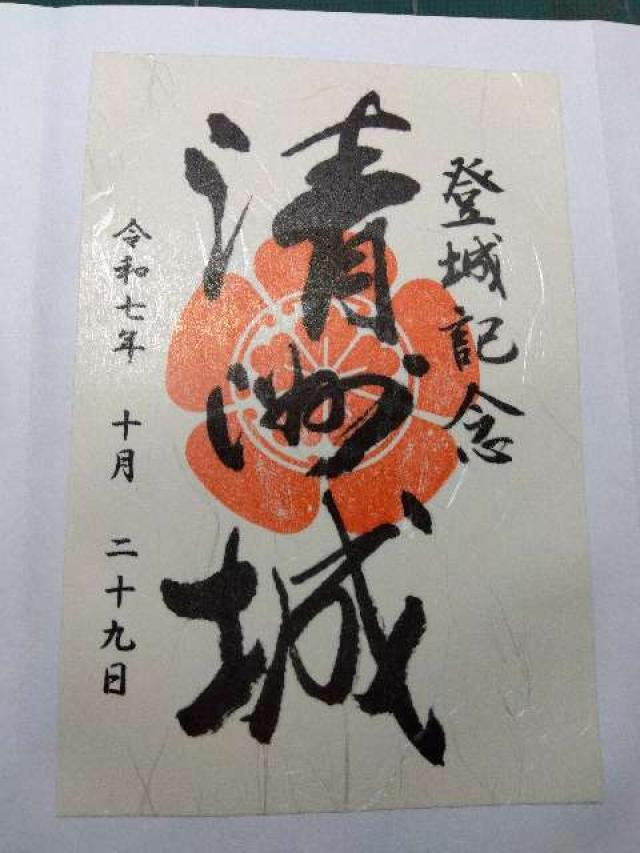 登城記念
清洲城
令和七年 十月 二十九日